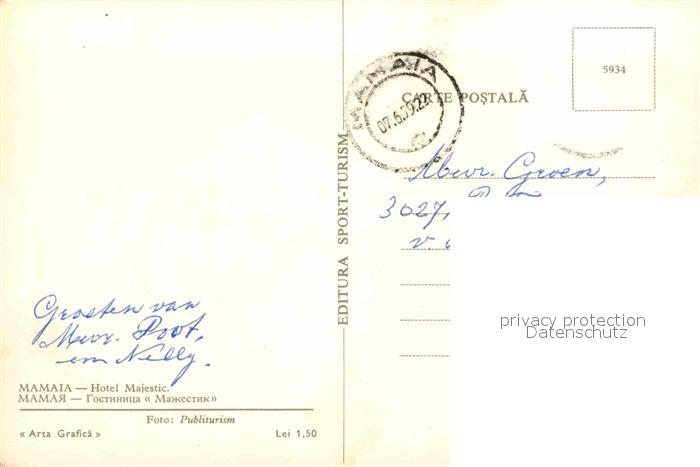 Groeten van
Mevr. Poot,
en Nelly.
MAMAIA — Hotel Majestic.
МАМАЯ — Гостиница « Мажестик»
Foto: Publiturism
« Arta Grafică »
Lei 1,50
EDITURA SPORT-TURISM
MAMAIA
07.6.79.22
CARTE POȘTALĂ
5934
Mevr. Groen,
3027,
v.
privacy protection
Datenschutz